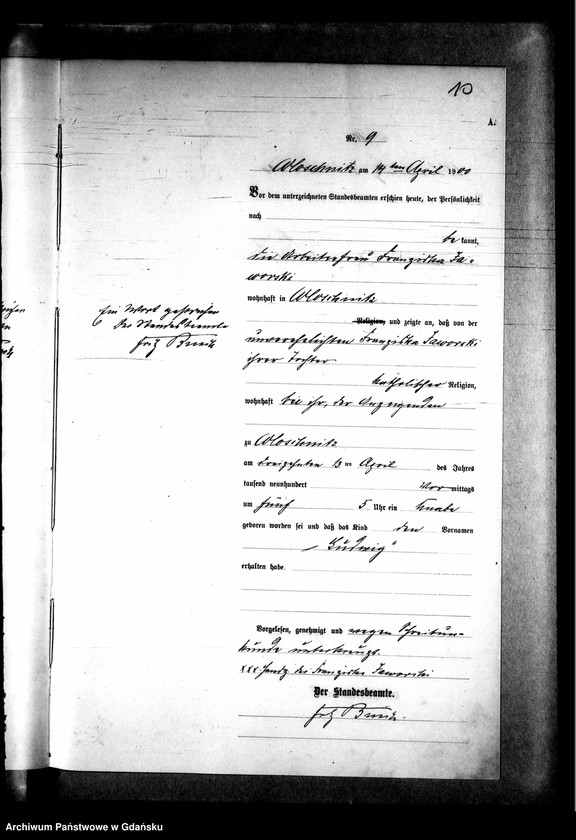 10
A.
Nr. 9
Woschnitz am 14 ten April 1900
Vor dem unterzeichneten Standesbeamten erschien heute, der Persönlichkeit
nach
be kannt,
die Arbeiterfrau Franziska Ja-
worski
wohnhaft in Woschnitz
Religion, und zeigte an, daß von der
unverehelichten Franziska Jaworski
ihrer Tochter
katholischer Religion,
wohnhaft bei ihr, der Anzeigenden
zu Woschnitz
am dreizehnten 13 ten April des Jahres
tausend neunhundert Vor mittags
um fünf 5 Uhr ein Knabe
geboren worden sei und daß das Kind den Vornamen
„Ludwig"
erhalten habe.
Vorgelesen, genehmigt und wegen Schreibun-
kunde unterkreuzt.
xxx Handz. der Franziska Jaworski
Der Standesbeamte.
Fritz
Ein Wort gestrichen
Der Standesbeamte
Fritz
Archiwum Państwowe w Gdańsku